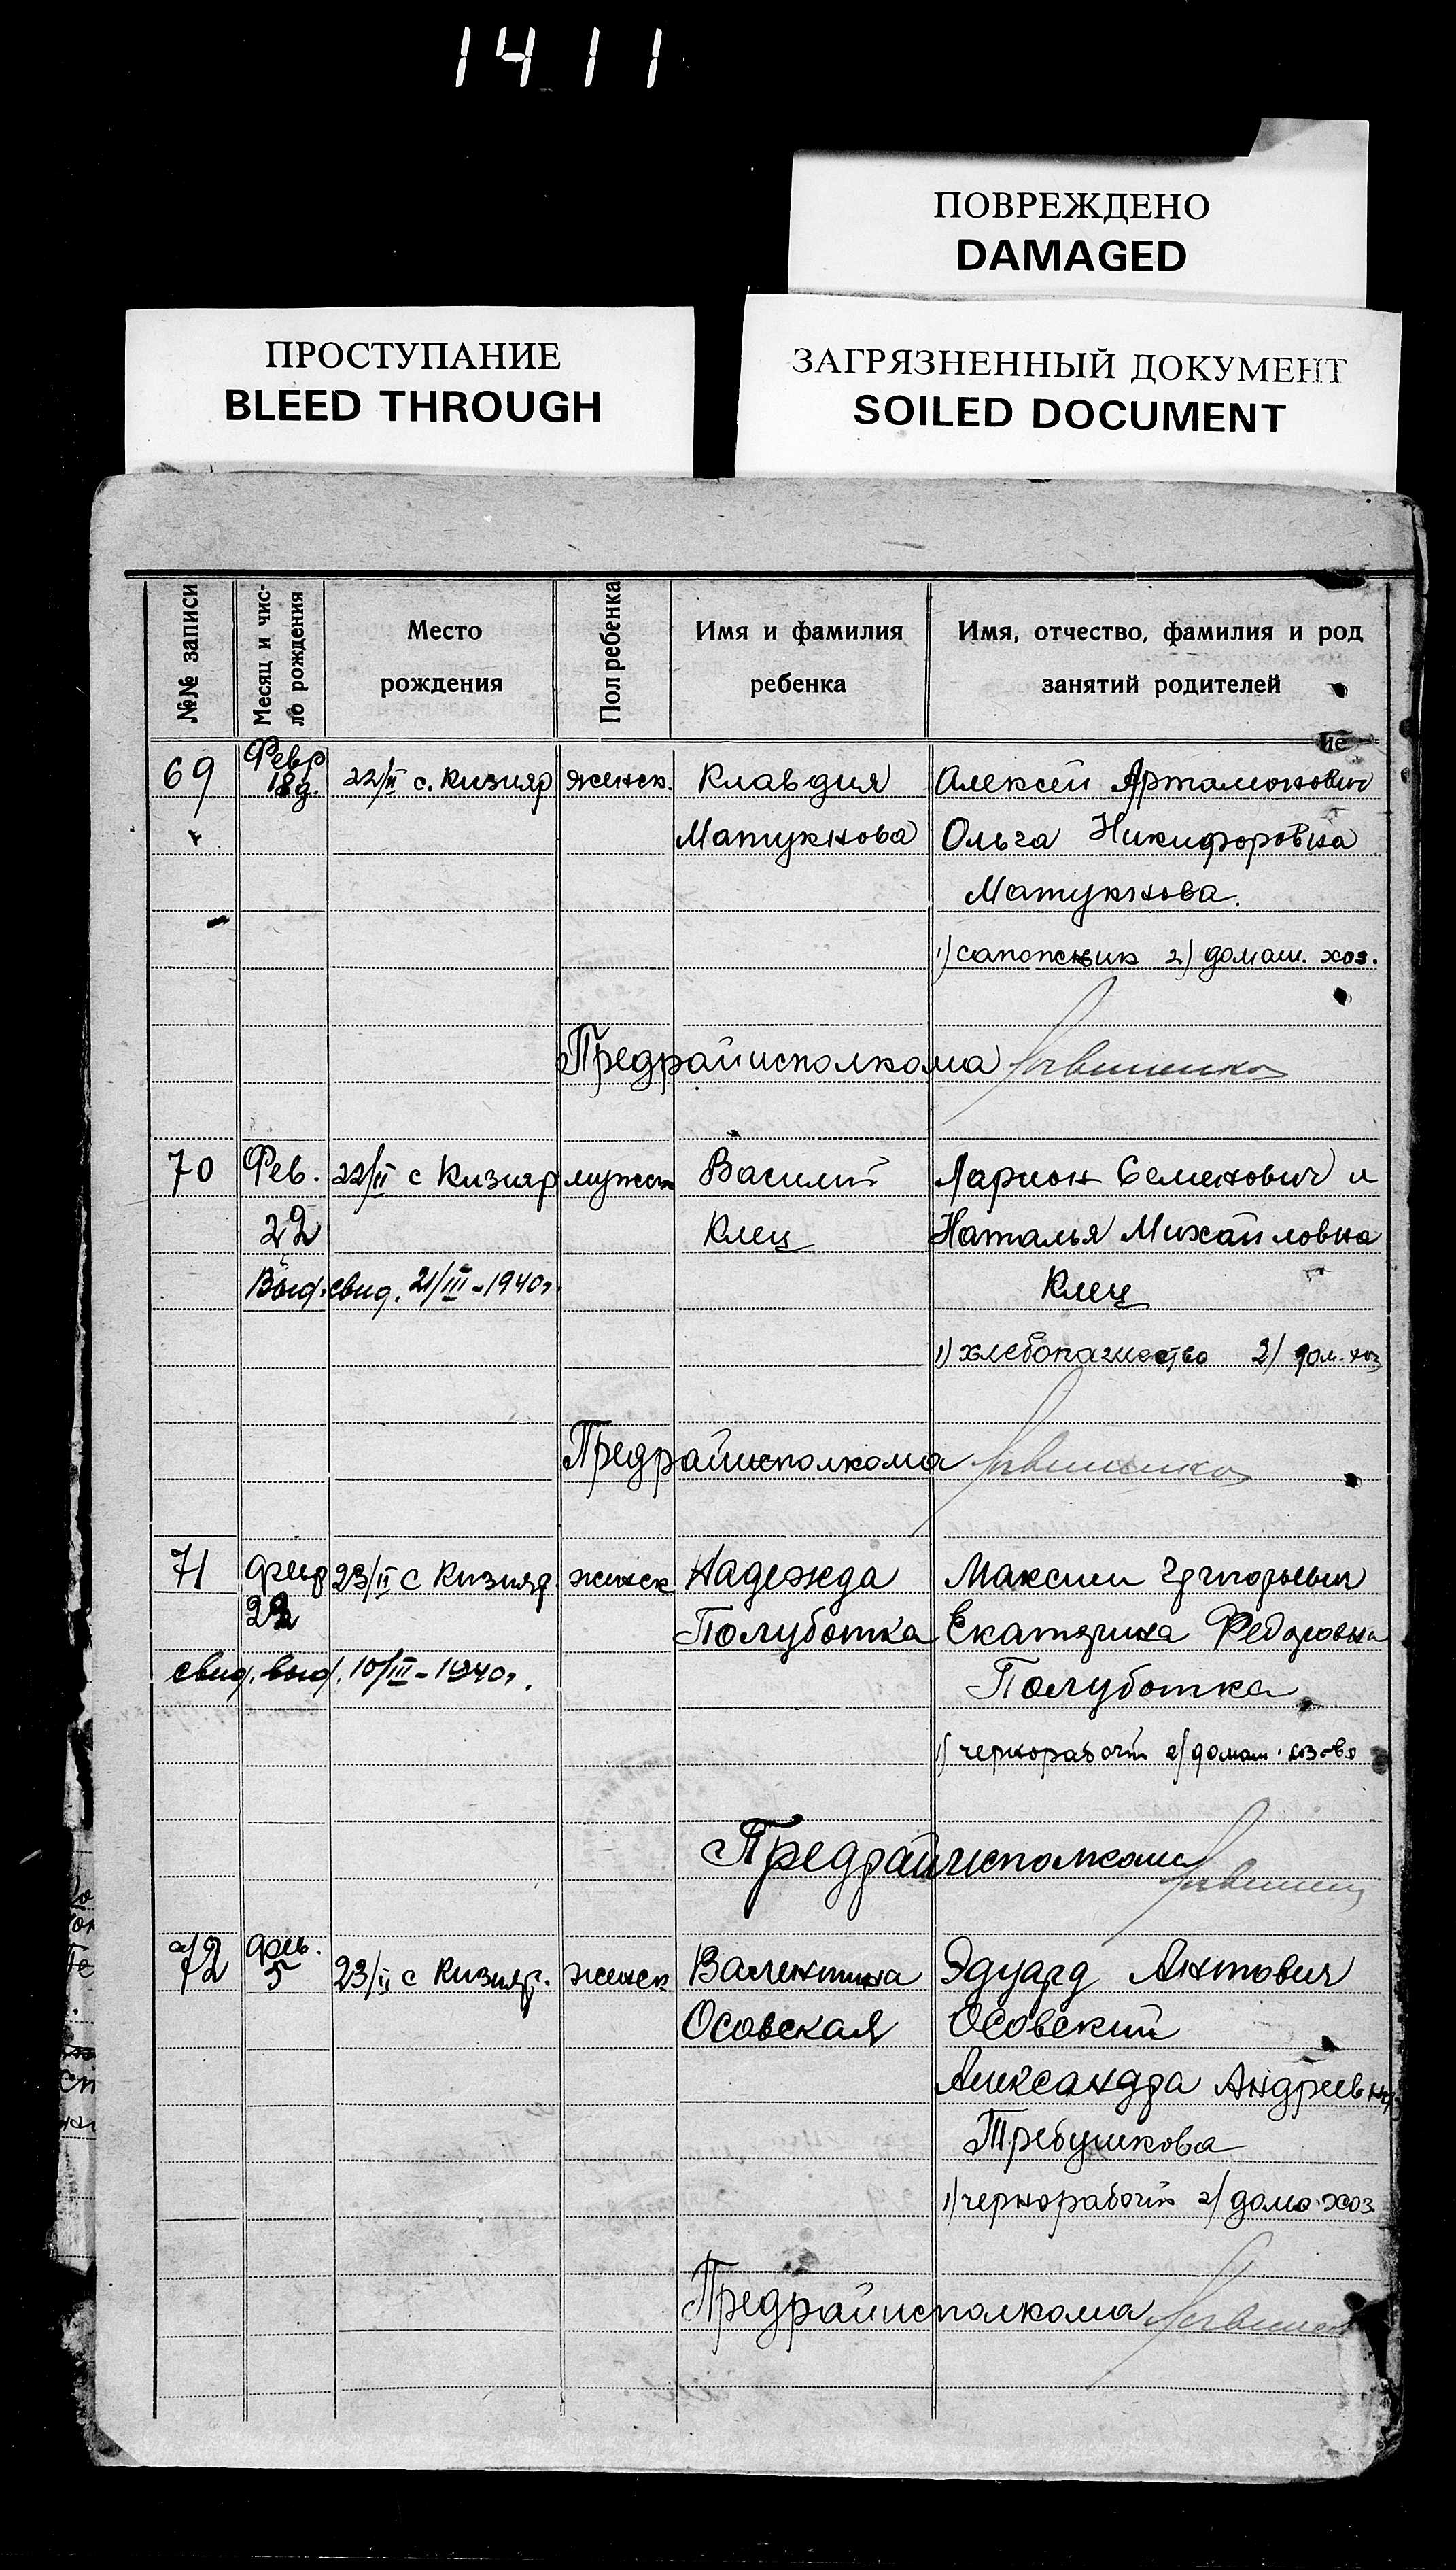 1411
ПОВРЕЖДЕНО
DAMAGED
ПРОСТУПАНИЕ
BLEED THROUGH
ЗАГРЯЗНЕННЫЙ ДОКУМЕНТ
SOILED DOCUMENT
№№ записи
Месяц и чис-
ло рождения
Место
рождения
Пол ребенка
Имя и фамилия
ребенка
Имя, отчество, фамилия и род
занятий родителей
69 Февр 18 д. 22/II с. Кизияр женск. Клавдия Алексей Артамонович
Матукнова Ольга Никифоровна
Матукнова.
1) сапожник 2) домаш. хоз.
Предрайисполкома
70 Фев. 22/II с Кизияр мужск Василий Ларион Семенович и
22 Клец Наталья Михайловна
Выд. свид. 21/III-1940г. Клец
1) хлебопашество 2) дом. хоз
Предрайисполкома
71 февр 23/II с Кизияр. женск Надежда Максим Григорьевич
22 Полуботка Екатерина Федоровна
свид. выд. 10/III-1940г. Полуботка
1) чернорабочий 2) домаш. хоз-во
Предрайисполкома
72 фев. 5 23/II с Кизияр. женск Валентина Эдуард Антович
Осовская Осовский
Александра Андреевна
Требушкова
1) чернорабочий 2) дома. хоз
Предрайисполкома